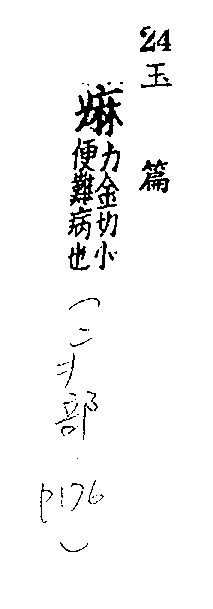 24 玉篇
痳
力金切小
便難病也
部・p176)